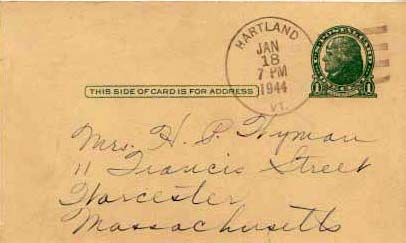 HARTLAND
JAN
18
7 PM
1944
VT.
U.S. POSTAL CARD
1 1
THIS SIDE OF CARD IS FOR ADDRESS
Mrs. H. P. Wyman
11 Francis Street
Worcester
Massachusetts